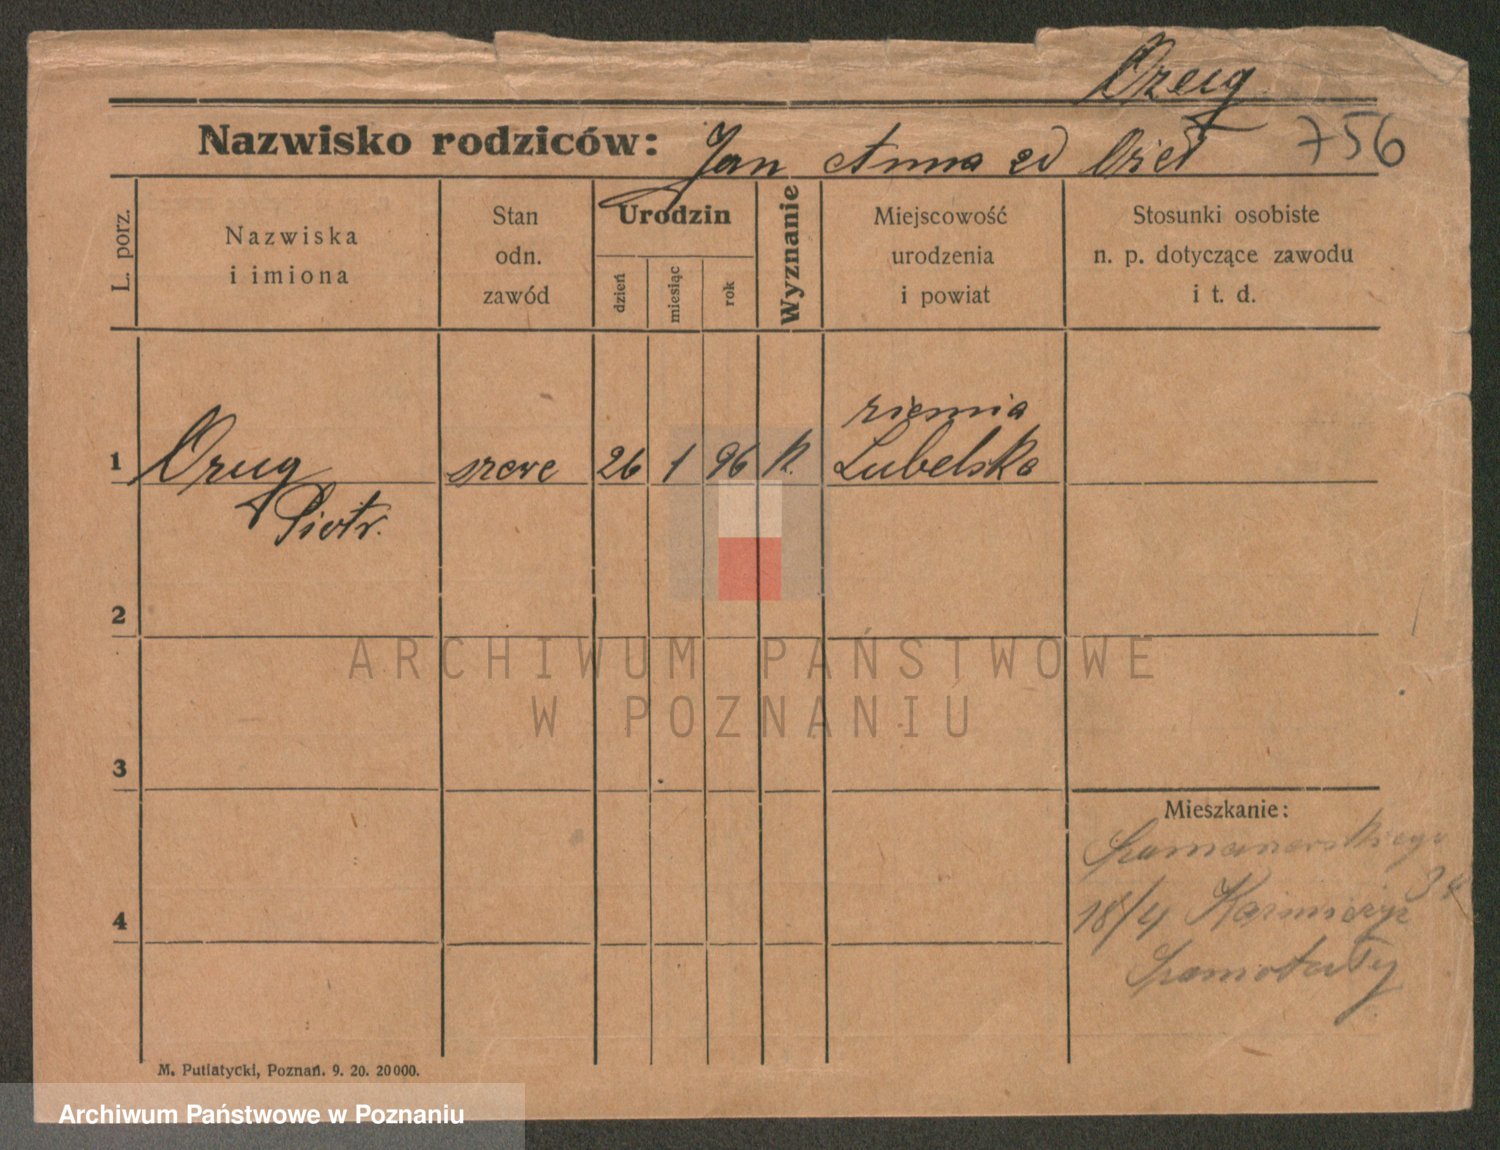 Nazwisko rodziców: Jan Anna
756
L. porz.
Nazwiska
i imiona
Stan
odn.
zawód
Urodzin
dzień
miesiąc
rok
Wyznanie
Miejscowość
urodzenia
i powiat
Stosunki osobiste
n. p. dotyczące zawodu
i t. d.
ziemia
1 szewc 26 1 96 k. Lubelska
Piotr.
2
3
4
Mieszkanie:
18/4 Kaźmierz
Szamotuły
M. Putiatycki, Poznań. 9. 20. 20 000.
ARCHIWUM PAŃSTWOWE
W POZNANIU
Archiwum Państwowe w Poznaniu